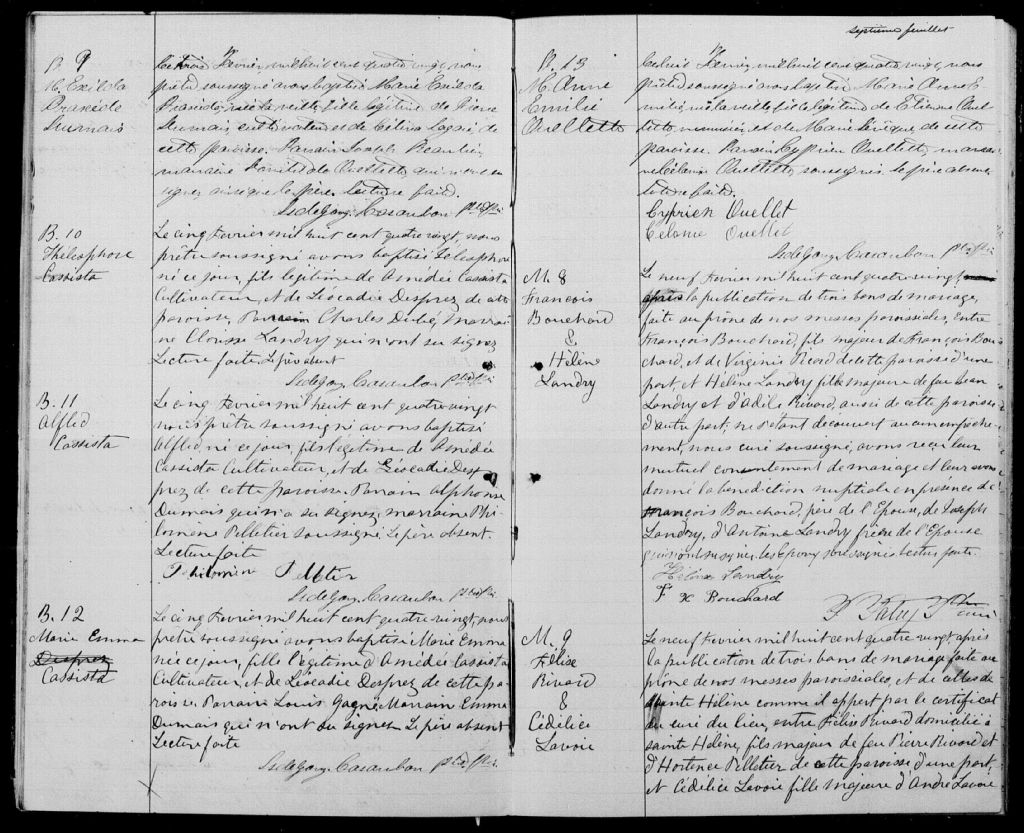 B. 9
M. Exilda
Praxède
Dumais
Le trois Fevrier, mil huit cent quatre vingt, nous
prêtre soussigné avons baptisé Marie Exilda
Praxède, née la veille, fille légitime de Pierre
Dumais, cultivateur et de Célina Lagacé de
cette paroisse. Parrain Joseph Beaulieu,
marraine Ouellette qui n'ont su
signer ainsi que le père. Lecture faite.
Casaubon Ptre
B. 10
Thélesphore
Cassista
Le cinq Fevrier mil huit cent quatre vingt, nous
prêtre soussigné avons baptisé Télesphore
né ce jour, fils légitime de Amédée Cassista
Cultivateur, et de Léocadie Desprez de cette
paroisse, Parrain Charles Dubé, Marrai
ne Elousse Landry qui n'ont su signer
Lecture faite. Le père absent
Casaubon Ptre
B. 11
Alfled
Cassista
Le cinq Fevrier mil huit cent quatre vingt
nous prêtre soussigné avons baptisé
Alfled, né ce jour, fils légitime de Amédée
Cassista Cultivateur, et de Léocadie Des
prez de cette paroisse. Parrain Alphonse
Dumais qui n'a su signer, marraine Phi
lomène Pelletier soussignée. Le père absent.
Lecture faite
Casaubon Ptre
B. 12
Marie Emma
Desprez
Cassista
Le cinq Fevrier mil huit cent quatre vingt, nous
prêtre soussigné avons baptisé Marie Emma
née ce jour, fille légitime d'Amédée Cassista
Cultivateur, et de Léocadie Desprez de cette pa
roisse. Parrain Louis Gagné Marraine Emma
Dumais qui n'ont su signer. Le père absent
Lecture faite
Casaubon Ptre
septième feuillet
B. 13
M. Anne
Emilie
Ouellette
Le huit Fevrier mil huit cent quatre vingt, nous
prêtre soussigné avons baptisé Marie Anne E
milie, née la veille, fille légitime de Etienne Ouel
lette, menuisier, et de Marie Lévêque de cette
paroisse. Parrain Cyprien Ouellet, marrai
ne Célanie Ouellette soussignés. le père absent
Lecture faite.
Cyprien Ouellet
Célanie Ouellet
Casaubon Ptre
M. 8
François
Bouchard
&
Hélène
Landry
Le neuf Fevrier mil huit cent quatre vingt,
après la publication de trois bans de mariage,
faite au prône de nos messes paroissiales, Entre
François Bouchard, fils majeur de François Bou
chard, et de Virginie Picard de cette paroisse d'une
part, et Hélène Landry fille majeure de feu Jean
Landry et d'Adèle Rivard, aussi de cette paroisse
d'autre part; ne s'étant découvert aucun empêche
ment, nous curé soussigné, avons reçu leur
mutuel consentement de mariage et leur avons
donné la bénédiction nuptiale en présence de
François Bouchard, père de l'Epoux, de Joseph
Landry, d'Antoine Landry frère de l'Epouse
qui n'ont su signer, les Epoux soussignés lecture faite.
Hélène Landry
F X Bouchard
M. 9
Félise
Rivard
&
Cédélice
Lavoie
Le neuf Fevrier mil huit cent quatre vingt, après
la publication de trois bans de mariage faite au
prône de nos messes paroissiales, et de celles de
sainte Hélène comme il appert par le certificat
du curé du lieu, entre Félise Rivard domicilié à
sainte Hélène, fils majeur de feu Pierre Rivard et
d'Hortence Pelletier de cette paroisse d'une part,
et Cédélice Lavoie fille majeure d'André Lavoie